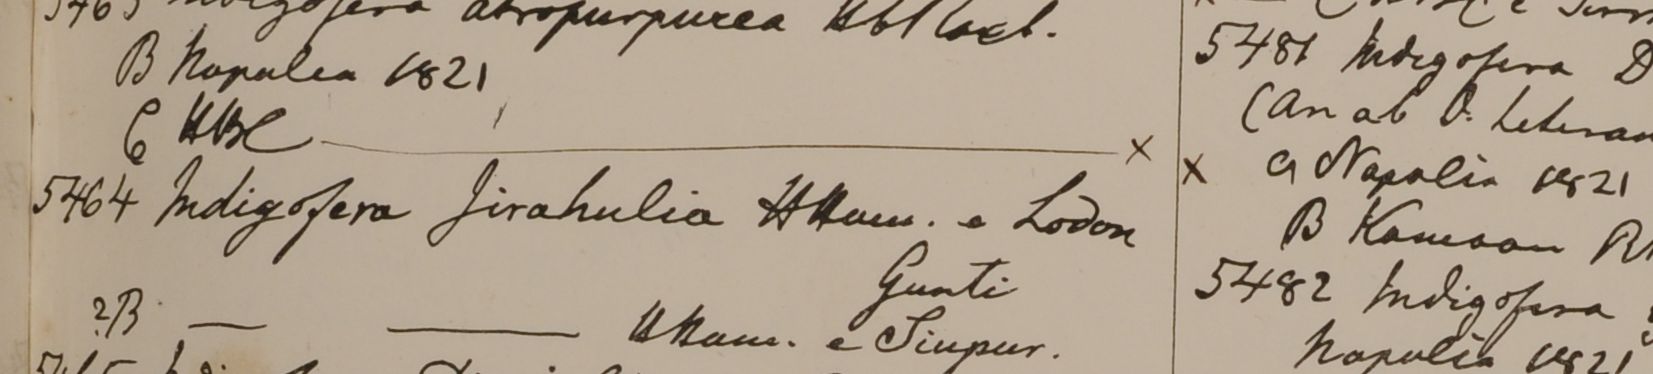 5463 Indigofera atropurpurea Hb Roxb.
B Napalea 1821
C HBC
5464 Indigofera Jirahulia HHam. e Lodon
Gunti
?B — — HHam. e Siupur.
× 
5481 Indigofera D
(An ab O. heteran
× a Napalia 1821
B Kamaon R
5482 Indigofera
Napalia 1821